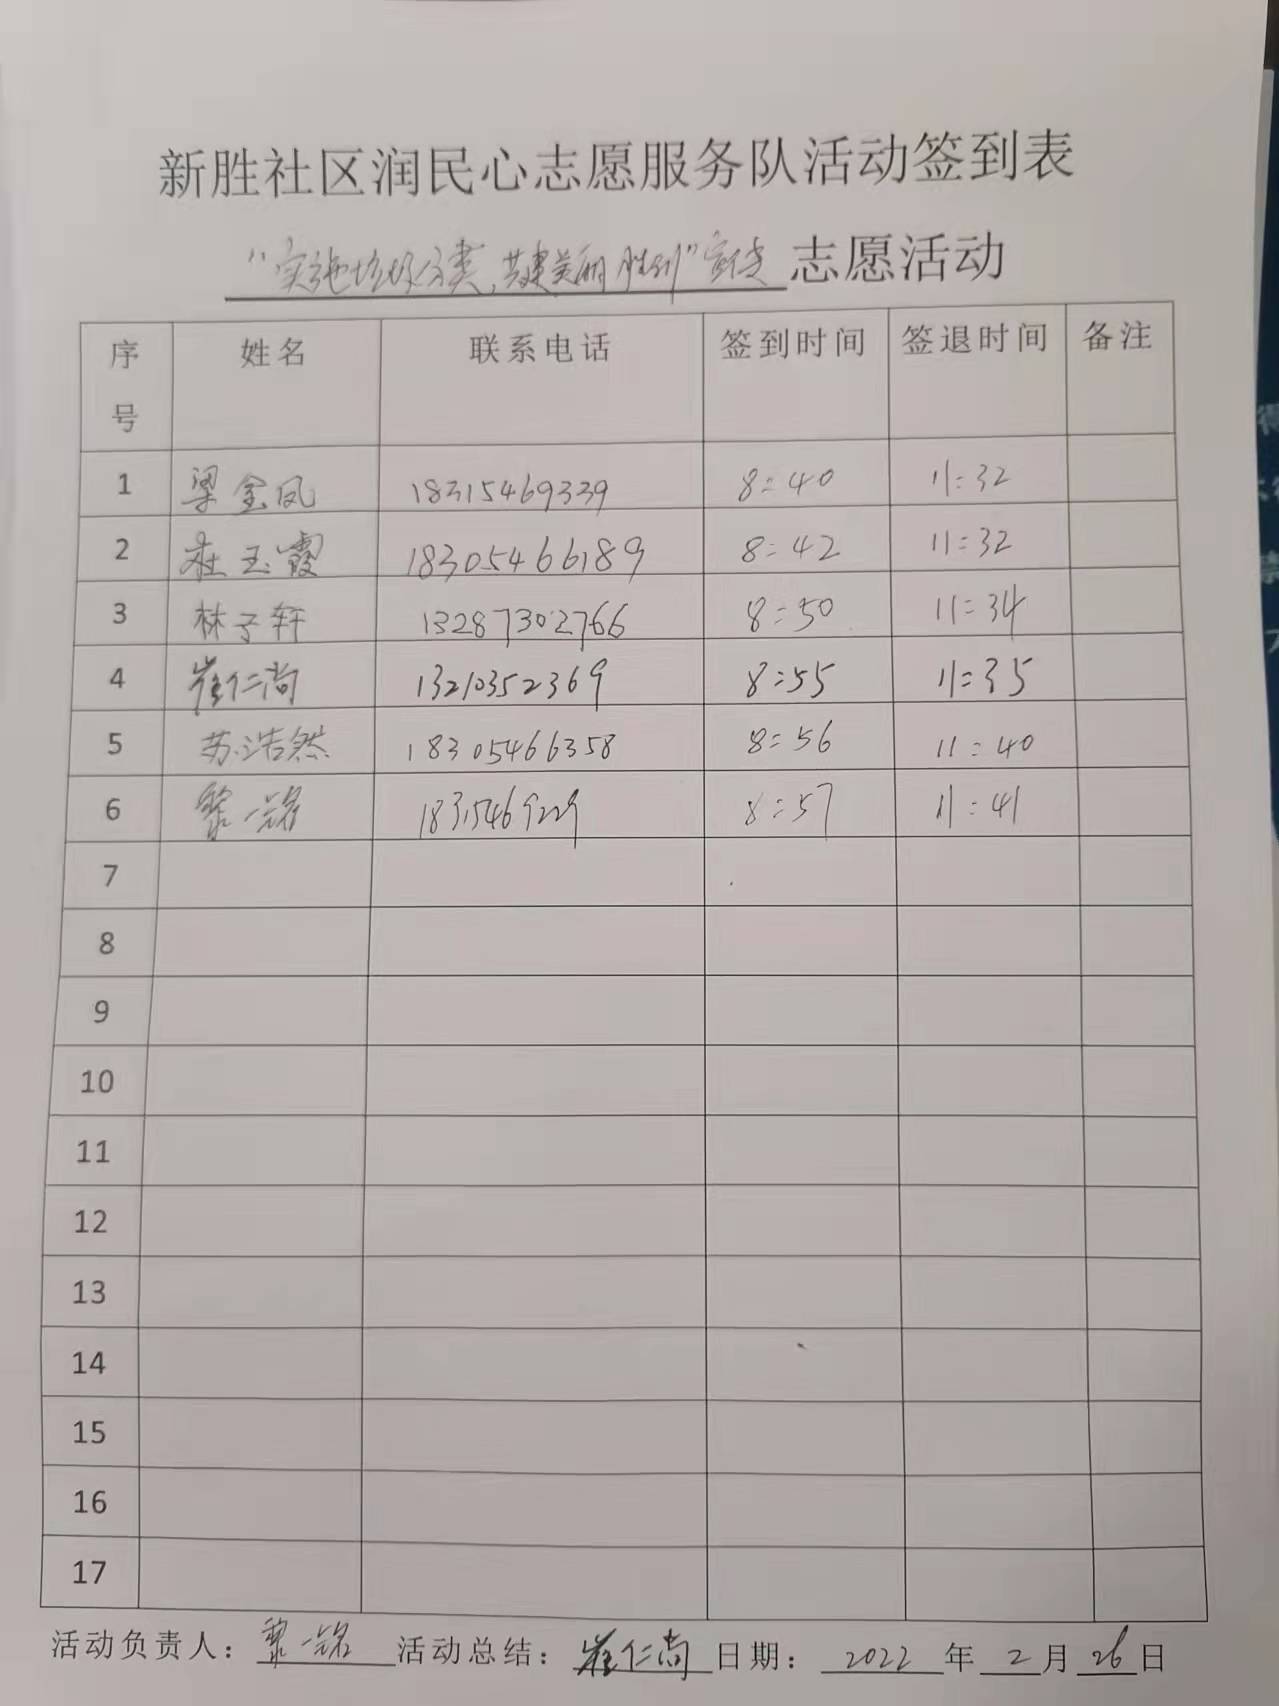 新胜社区润民心志愿服务队活动签到表
“实施垃圾分类,共建美丽胜利”宣传 志愿活动
序号 姓名 联系电话 签到时间 签退时间 备注
1 梁金凤 18315469339 8:40 11:32
2 杜玉霞 18305466189 8:42 11:32
3 林子轩 13287302766 8:50 11:34
4 崔仁尚 13210352369 8:55 11:35
5 苏浩然 18305466358 8:56 11:40
6 黎一铭 18315469229 8:57 11:41
7
8
9
10
11
12
13
14
15
16
17
活动负责人:黎一铭 活动总结:崔仁尚 日期:2022年2月26日